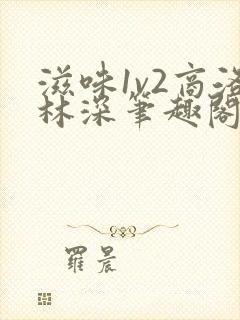 滋味1v2高洛
林深笔趣阁
罗晨